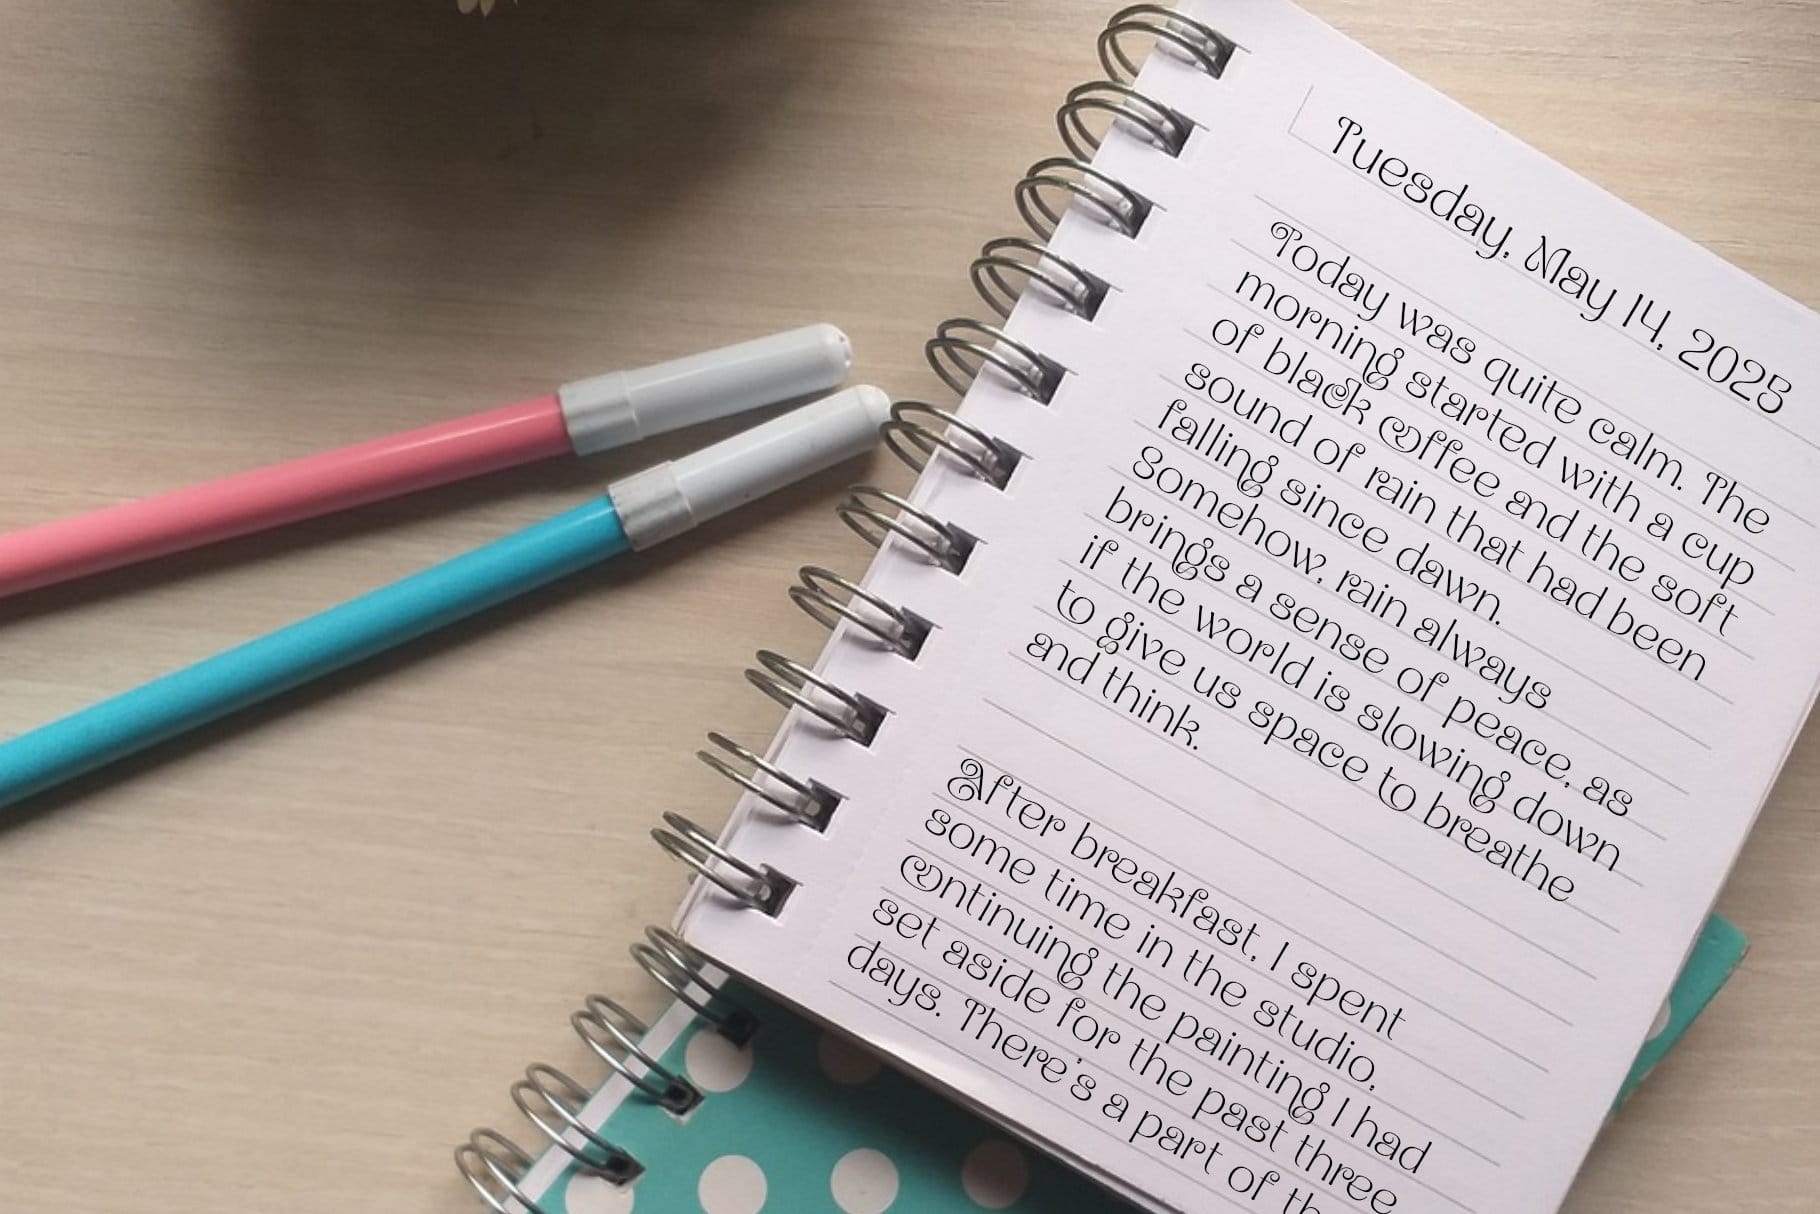 Tuesday, May 14, 2025
Today was quite calm. The
morning started with a cup
of black coffee and the soft
sound of rain that had been
falling since dawn.
Somehow, rain always
brings a sense of peace, as
if the world is slowing down
to give us space to breathe
and think.
After breakfast, I spent
some time in the studio,
continuing the painting I had
set aside for the past three
days. There's a part of